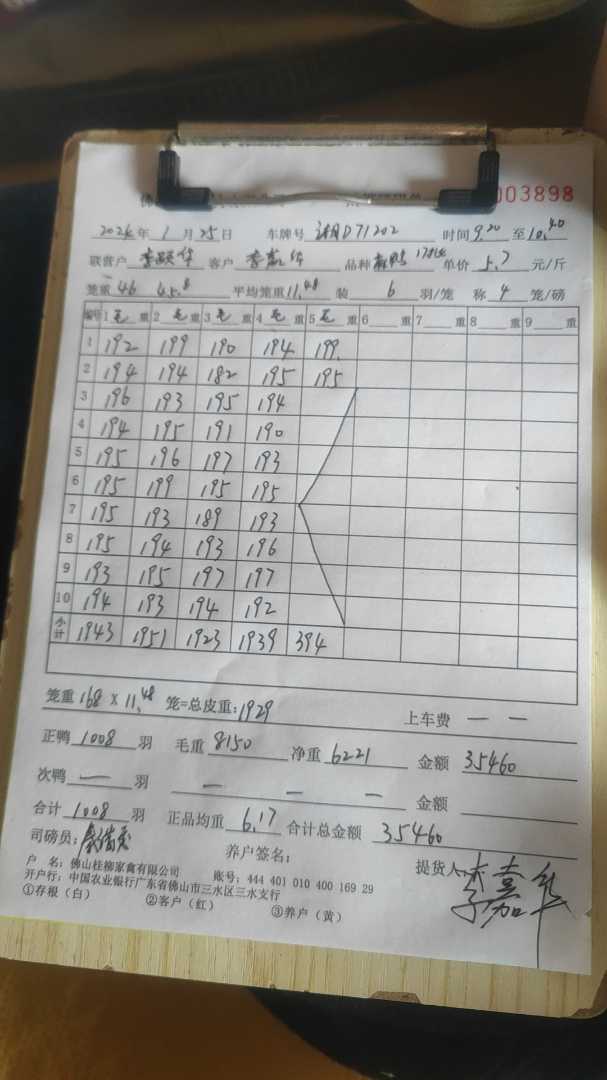 003898
2024年 1月25日 车牌号 湘D71202 时间 9.20 至 10.40
联营户 客户 李嘉华 品种 麻鸭 单价 5.7 元/斤
笼重 46 45.8 平均笼重 11.48 装 6 羽/笼 称 4 笼/磅
编号 1 毛 重 2 毛 重 3 毛 重 4 毛 重 5 毛 重 6 重 7 重 8 重 9 重
1 192 199 190 194 199
2 194 194 182 195 195
3 196 193 195 194
4 194 195 191 190
5 195 196 197 193
6 195 199 195 195
7 195 193 189 193
8 195 194 193 196
9 193 195 197 197
10 194 193 194 192
小计 1943 1951 1923 1939 394
笼重 168 X 11.48 笼=总皮重: 1929 上车费 — —
正鸭 1008 羽 毛重 8150 净重 6221 金额 35460
次鸭 — 羽 — — — 金额
合计 1008 羽 正品均重 6.17 合计总金额 35460
司磅员: 养户签名: 提货人: 李嘉华
户 名: 佛山桂柳家禽有限公司 账号: 444 401 010 400 169 29
开户行: 中国农业银行广东省佛山市三水区三水支行
①存根（白） ②客户（红） ③养户（黄）